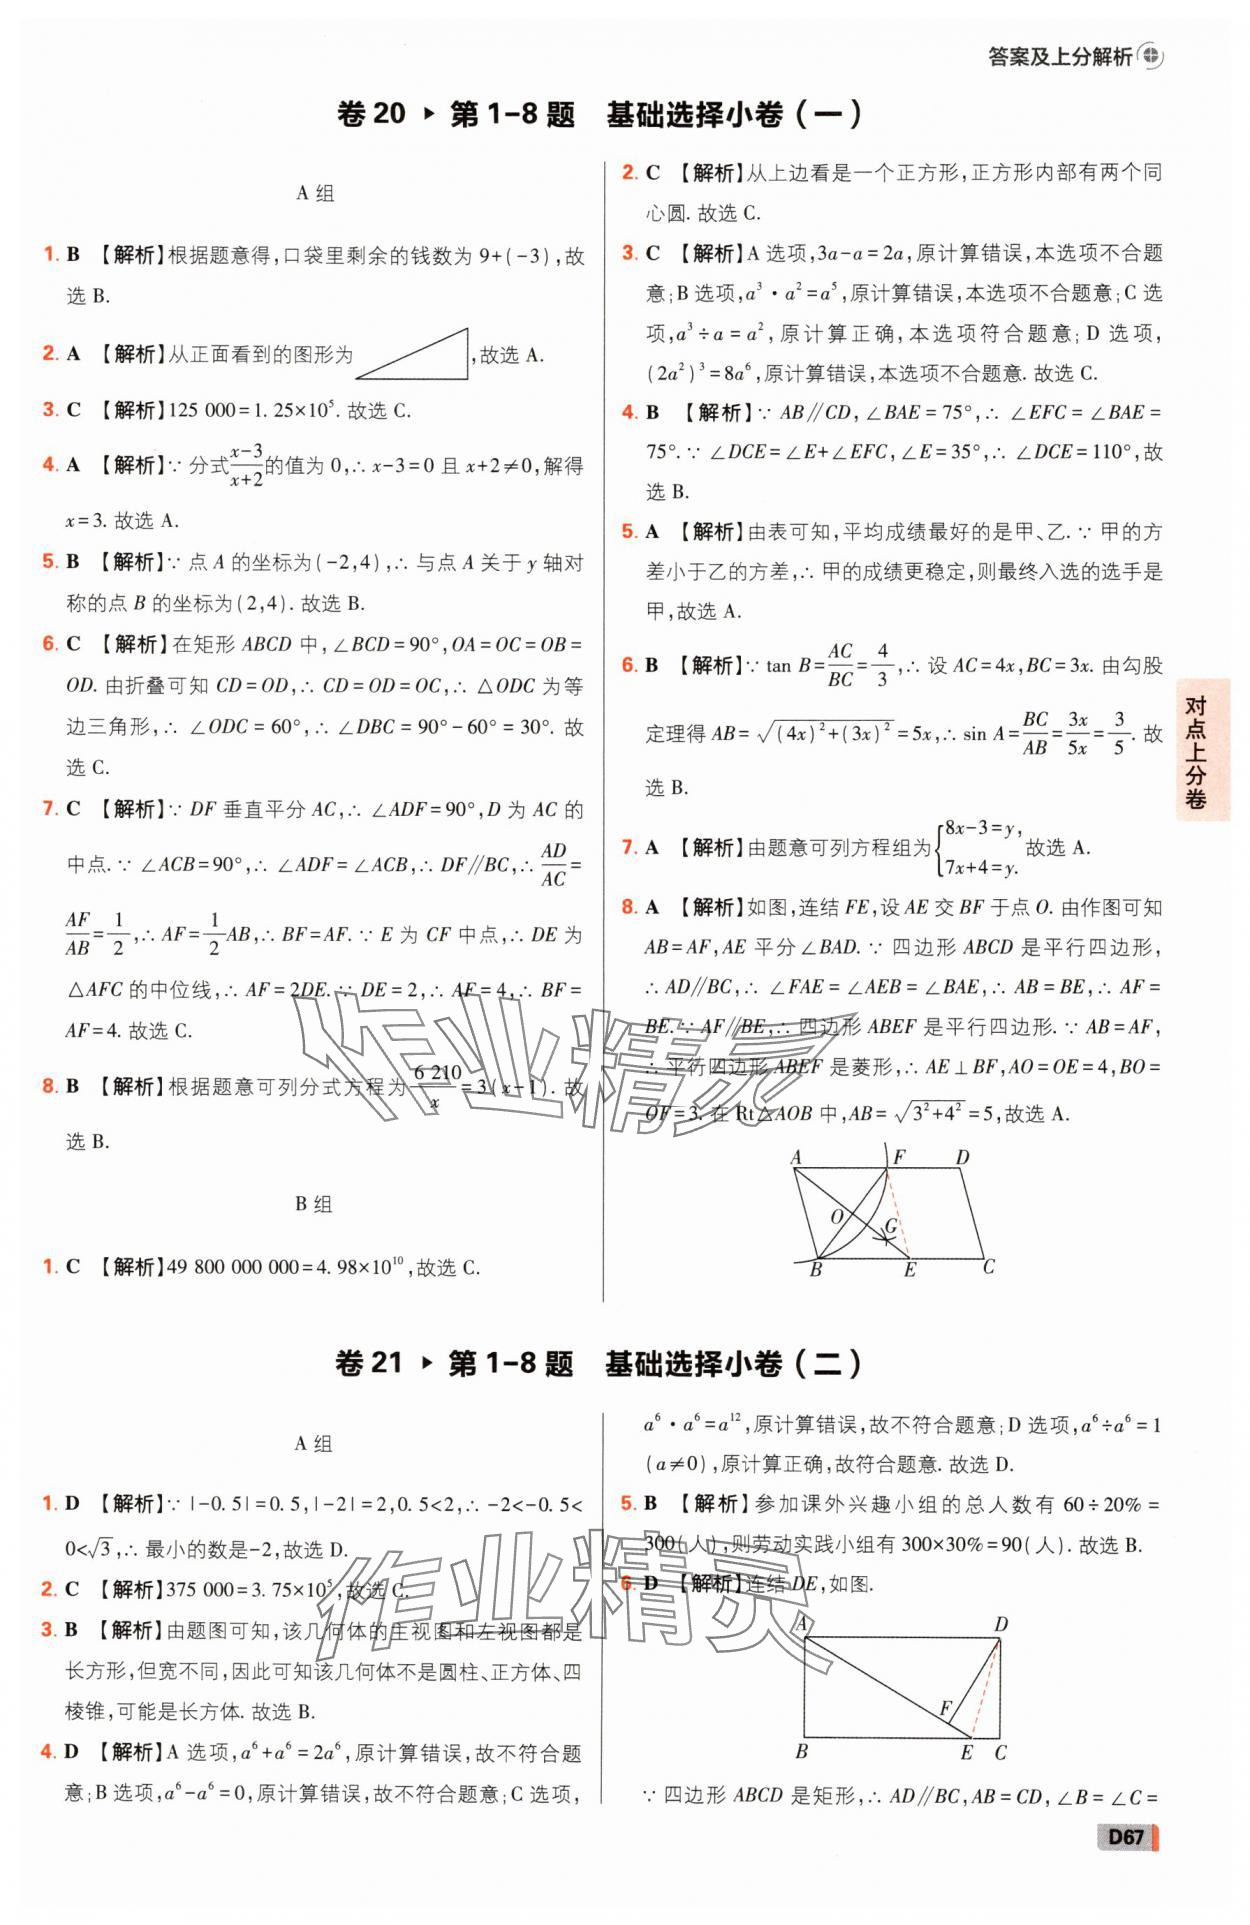 答案及上分解析
卷 20 ▸ 第 1-8 题 基础选择小卷(一)
A 组
1. B 【解析】根据题意得,口袋里剩余的钱数为 9+(-3),故
选 B.
2. A 【解析】从正面看到的图形为 ,故选 A.
3. C 【解析】125 000=1. 25×10⁵. 故选 C.
4. A 【解析】∵ 分式(x-3)/(x+2)的值为 0,∴ x-3=0 且 x+2≠0,解得
x=3. 故选 A.
5. B 【解析】∵ 点 A 的坐标为(-2,4),∴ 与点 A 关于 y 轴对
称的点 B 的坐标为(2,4). 故选 B.
6. C 【解析】在矩形 ABCD 中,∠BCD=90°,OA=OC=OB=
OD. 由折叠可知 CD=OD,∴ CD=OD=OC,∴ △ODC 为等
边三角形,∴ ∠ODC=60°,∴ ∠DBC=90°-60°=30°. 故
选 C.
7. C 【解析】∵ DF 垂直平分 AC,∴ ∠ADF=90°,D 为 AC 的
中点. ∵ ∠ACB=90°,∴ ∠ADF=∠ACB,∴ DF∥BC,∴ AD/AC=
AF/AB=1/2,∴ AF=1/2AB,∴ BF=AF. ∵ E 为 CF 中点,∴ DE 为
△AFC 的中位线,∴ AF=2DE. ∵ DE=2,∴ AF=4,∴ BF=
AF=4. 故选 C.
8. B 【解析】根据题意可列分式方程为6 210/x=3(x-1). 故
选 B.
B 组
1. C 【解析】49 800 000 000=4. 98×10¹⁰,故选 C.
2. C 【解析】从上边看是一个正方形,正方形内部有两个同
心圆. 故选 C.
3. C 【解析】A 选项,3a-a=2a,原计算错误,本选项不合题
意;B 选项,a³·a²=a⁵,原计算错误,本选项不合题意;C 选
项,a³÷a=a²,原计算正确,本选项符合题意;D 选项,
(2a²)³=8a⁶,原计算错误,本选项不合题意. 故选 C.
4. B 【解析】∵ AB∥CD,∠BAE=75°,∴ ∠EFC=∠BAE=
75°. ∵ ∠DCE=∠E+∠EFC,∠E=35°,∴ ∠DCE=110°,故
选 B.
5. A 【解析】由表可知,平均成绩最好的是甲、乙. ∵ 甲的方
差小于乙的方差,∴ 甲的成绩更稳定,则最终入选的选手是
甲,故选 A.
6. B 【解析】∵ tan B=AC/BC=4/3,∴ 设 AC=4x,BC=3x. 由勾股
定理得 AB=√((4x)²+(3x)²)=5x,∴ sin A=BC/AB=3x/5x=3/5. 故
选 B.
7. A 【解析】由题意可列方程组为{8x-3=y, 7x+4=y. 故选 A.
8. A 【解析】如图,连结 FE,设 AE 交 BF 于点 O. 由作图可知
AB=AF,AE 平分∠BAD. ∵ 四边形 ABCD 是平行四边形,
∴ AD∥BC,∴ ∠FAE=∠AEB=∠BAE,∴ AB=BE,∴ AF=
BE. ∵ AF∥BE,∴ 四边形 ABEF 是平行四边形. ∵ AB=AF,
∴ 平行四边形 ABEF 是菱形,∴ AE⊥BF,AO=OE=4,BO=
OF=3. 在 Rt△AOB 中,AB=√(3²+4²)=5,故选 A.
A F D
O G
B E C
对点上分卷
作业精灵
卷 21 ▸ 第 1-8 题 基础选择小卷(二)
A 组
1. D 【解析】∵ |-0. 5|=0. 5,|-2|=2,0. 5<2,∴ -2<-0. 5<
0<√3,∴ 最小的数是-2,故选 D.
2. C 【解析】375 000=3. 75×10⁵,故选 C.
3. B 【解析】由题图可知,该几何体的主视图和左视图都是
长方形,但宽不同,因此可知该几何体不是圆柱、正方体、四
棱锥,可能是长方体. 故选 B.
4. D 【解析】A 选项,a⁶+a⁶=2a⁶,原计算错误,故不符合题
意;B 选项,a⁶-a⁶=0,原计算错误,故不符合题意;C 选项,
a⁶·a⁶=a¹²,原计算错误,故不符合题意;D 选项,a⁶÷a⁶=1
(a≠0),原计算正确,故符合题意. 故选 D.
5. B 【解析】参加课外兴趣小组的总人数有 60÷20%=
300(人),则劳动实践小组有 300×30%=90(人). 故选 B.
6. D 【解析】连结 DE,如图.
A D
F
B E C
∵ 四边形 ABCD 是矩形,∴ AD∥BC,AB=CD,∠B=∠C=
作业精灵
D67